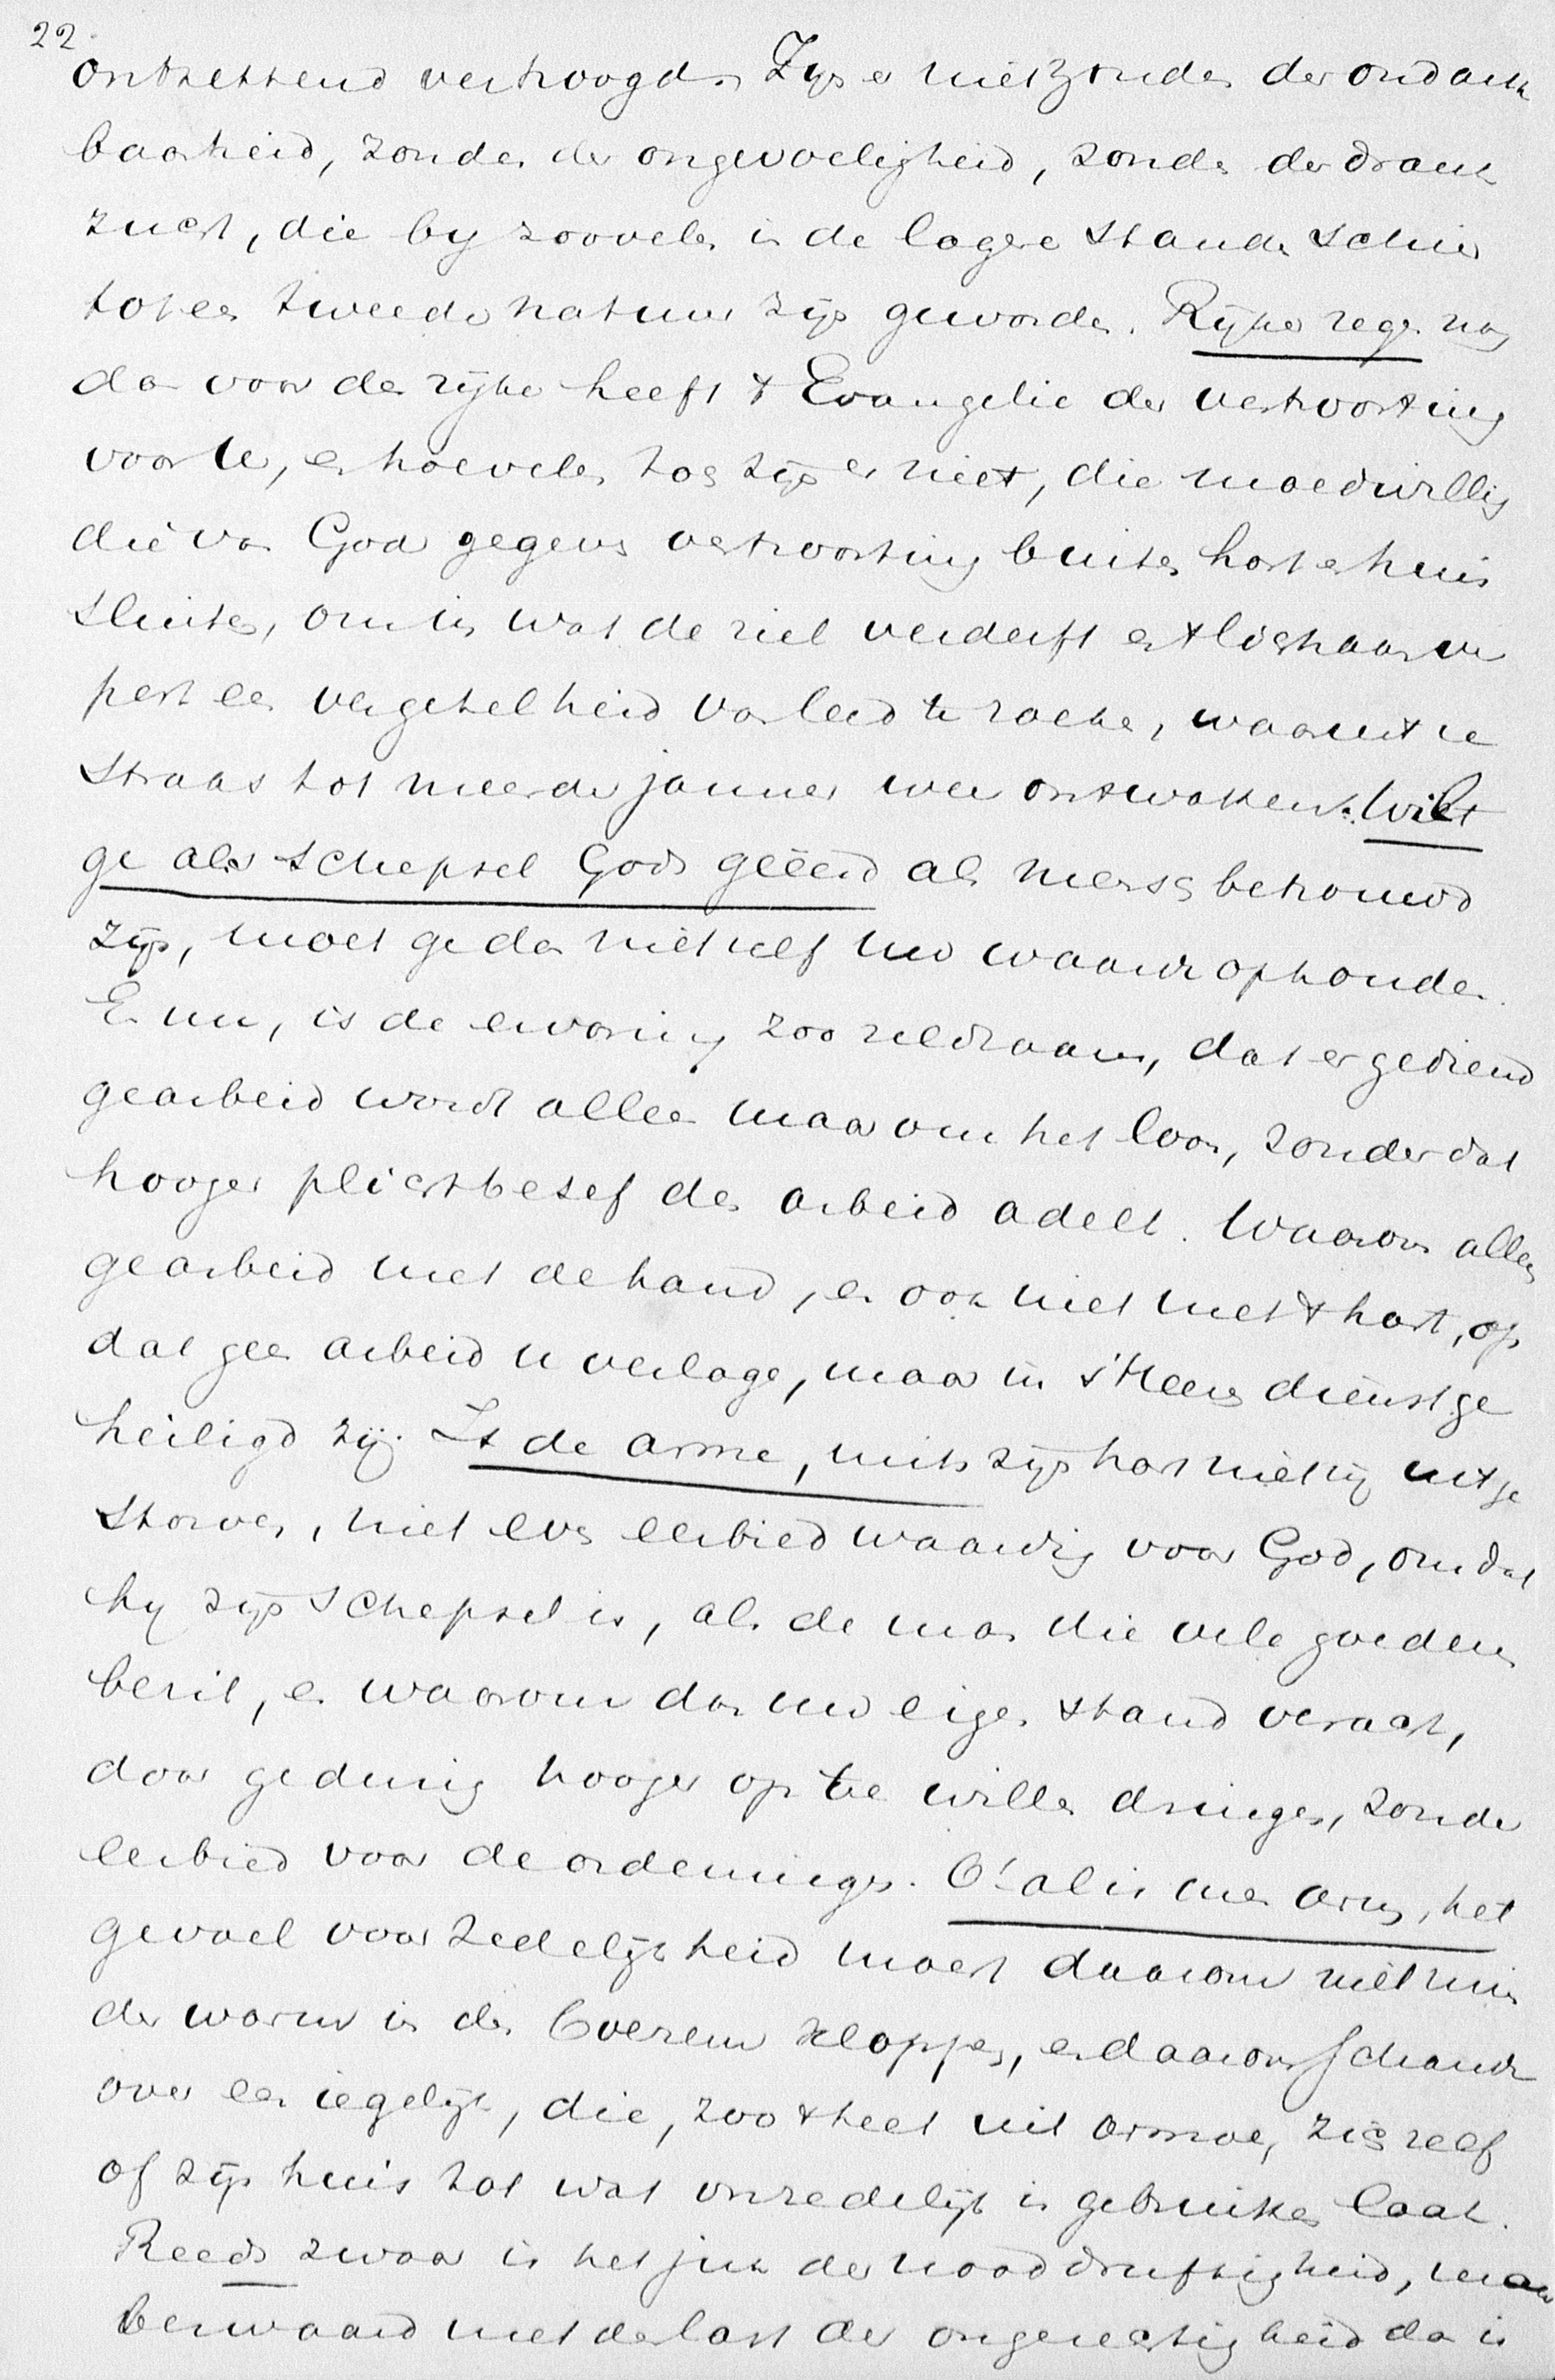 22.
ontzettend verhoogd. Zijn er niet zonden der ondank
baarheid, zonden der ongevoeligheid, zonden der drank
zucht, die by zoovelen in de lagere standen schier
tot een tweede natuur zijn geworden. Rijker zegen nog
dan voor den rijke heeft 't Evangelie der vertroosting
voor U, en hoevelen tog zijn er niet, die moedwillig
die van God gegeven vertroosting buiten hart en huis
sluiten, om in wat de ziel verderft en 't lighaam ver
pest een vergetelheid van leed te zoeken, waaruit ze
straks tot meerder jammer weer ontwaken. Wilt
ge als schepsel Gods geëerd als mensch betrouwd
zijn, moet ge dan niet zelf uw waarde ophouden.
En nu, is de ervaring zoo zeldzaam, dat er gediend
gearbeid wordt alleen maar om het loon, zonder dat
hooger plichtbesef den arbeid adelt. Waarom alleen
gearbeid met de hand, en ook niet met 't hart, op
dat geen arbeid u verlage, maar in 's Heeren dienst ge
heiligd zij. Is de arme, mits zijn hart niet zij uitge
storven, niet even eerbiedwaardig voor God, omdat
hij zijn schepsel is, als de man die vele goederen
bezit, en waarom dan uw eigen stand veracht,
door gedurig hooger op te willen dringen, zonder
eerbied voor de ordeningen. O! al is men arm, het
gevoel voor zedelijkheid moet daarom niet min
der warm in den boezem kloppen, en daarom schande
over een iegelijk, die, zoo 't heet uit armoe, zich zelf
of zijn huis tot wat onzedelijk is gebruiken laat.
Reeds zwaar is het juk der nooddruftigheid, maar
bezwaard met den last der ongerechtigheid dan is